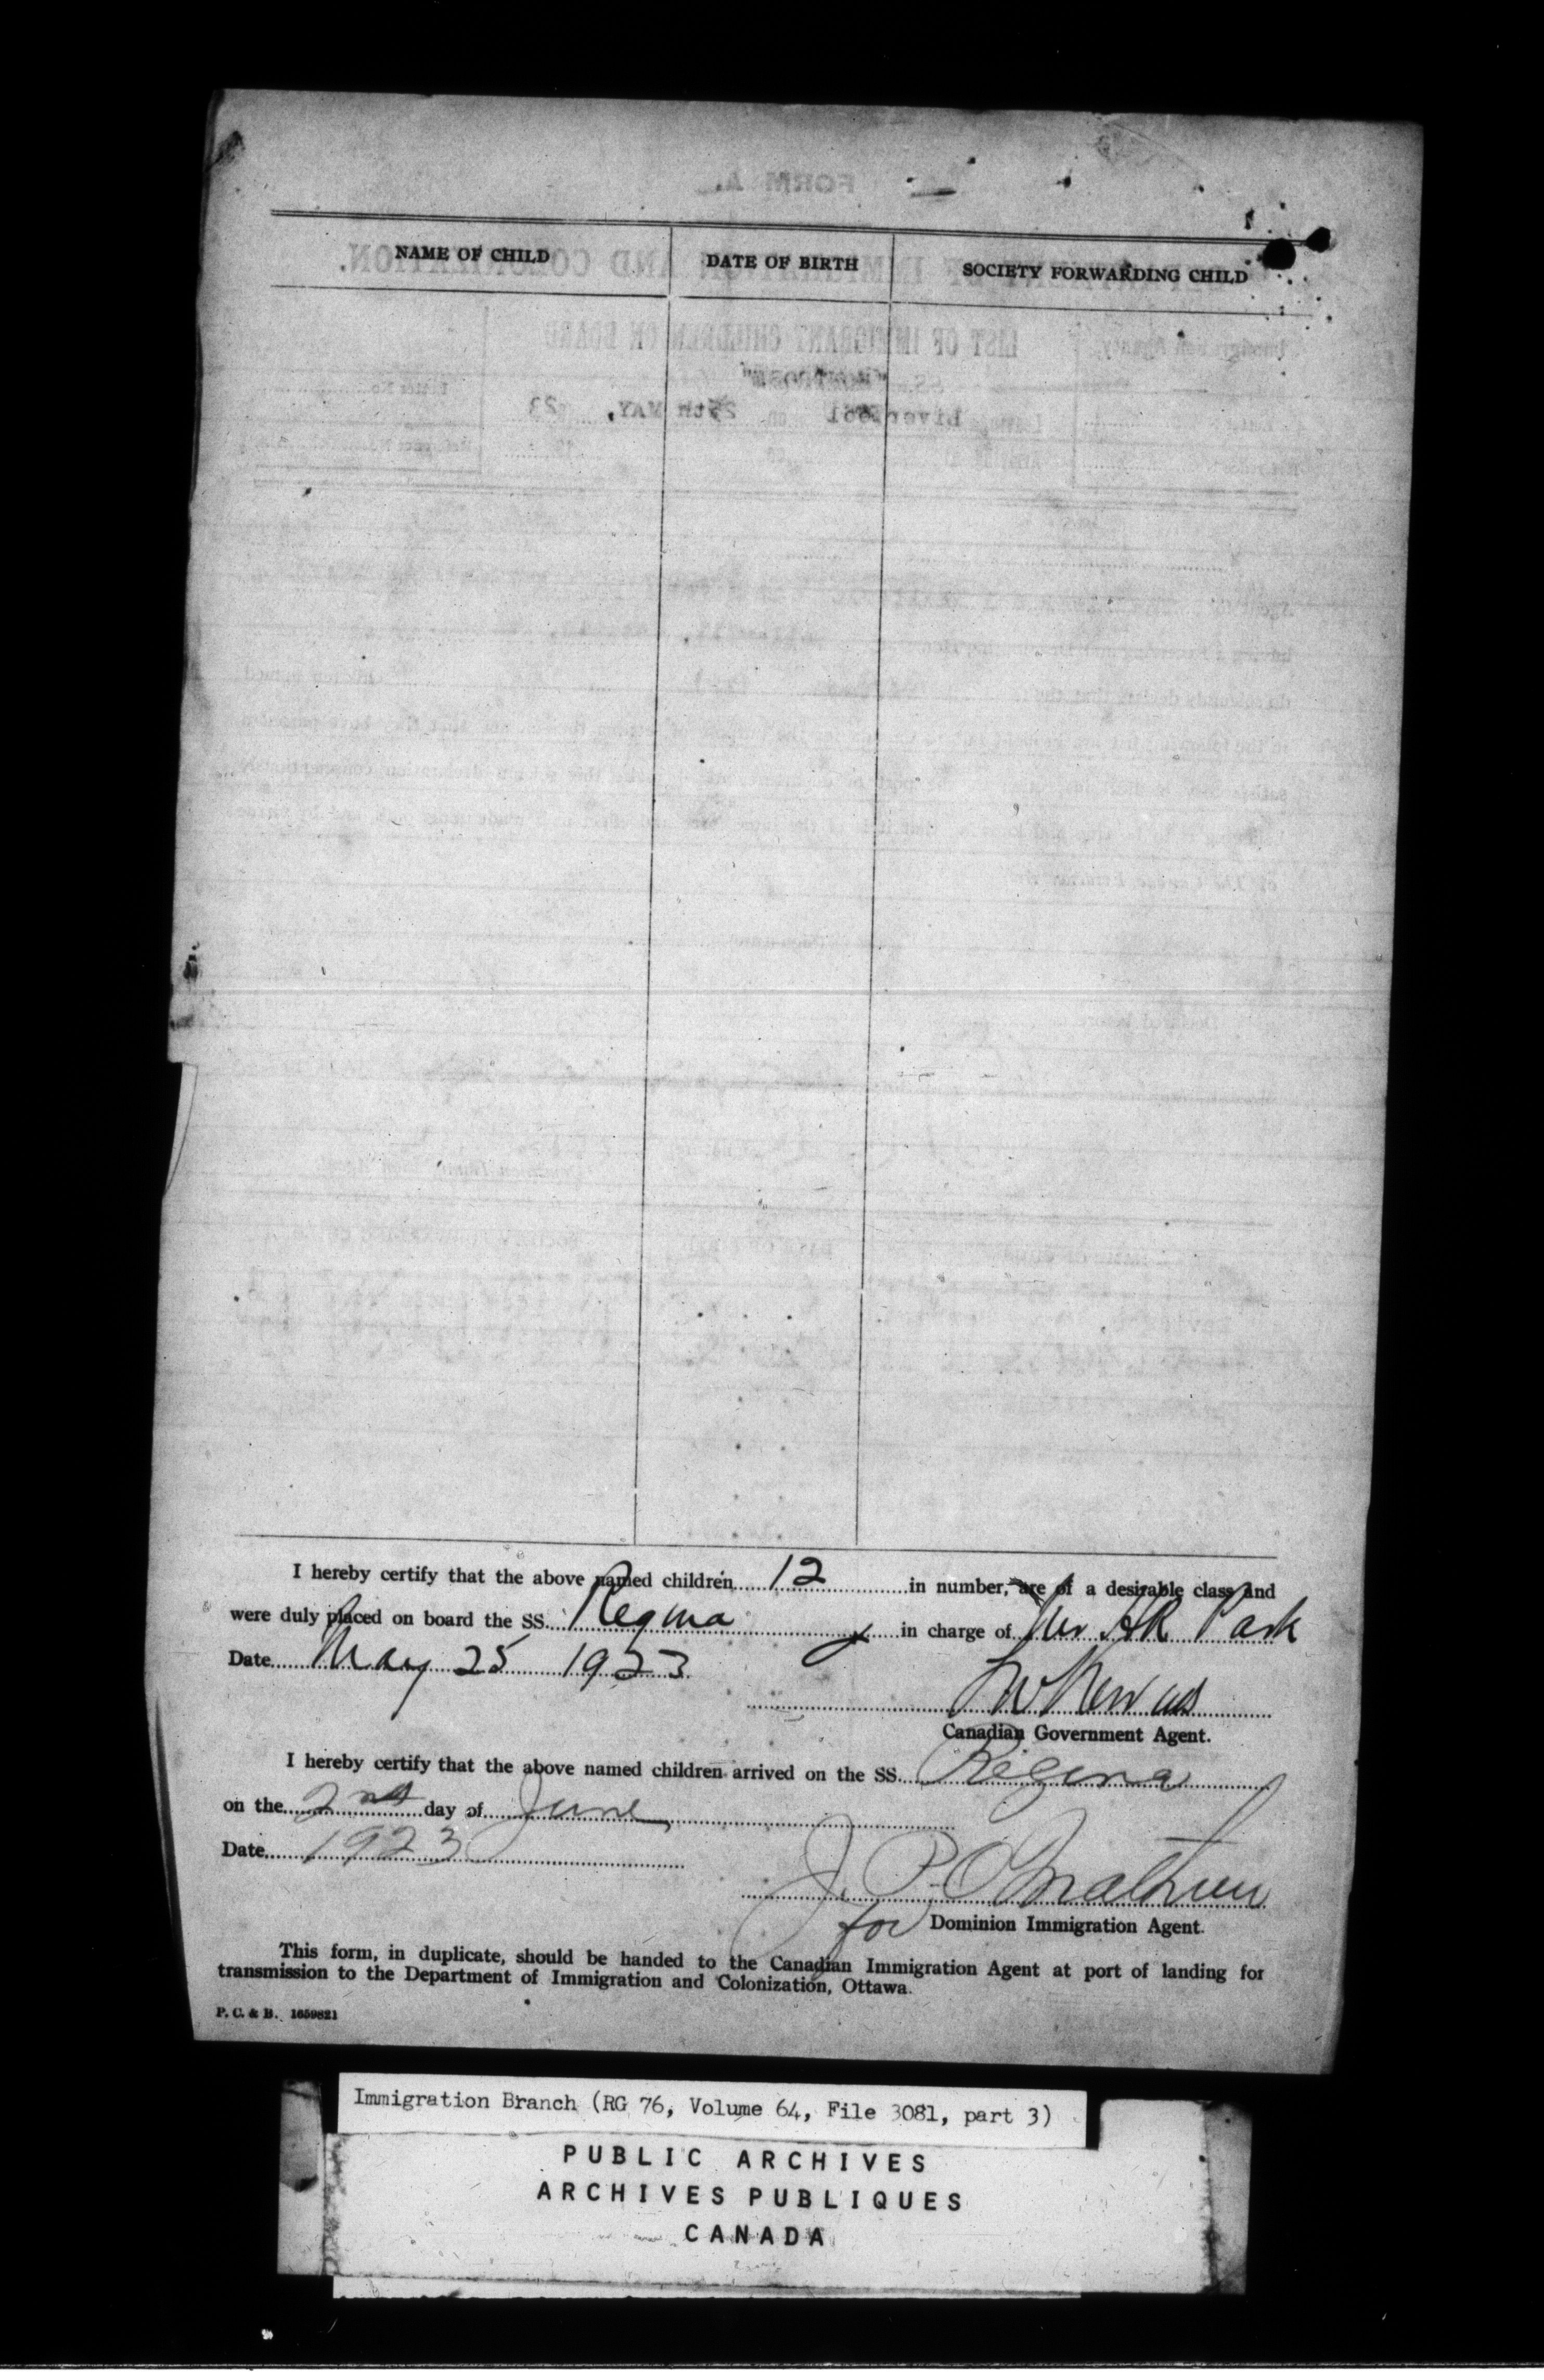 NAME OF CHILD DATE OF BIRTH SOCIETY FORWARDING CHILD
I hereby certify that the above named children 12 in number, are of a desirable class and
were duly placed on board the SS. Regina in charge of Mr AR Park
Date May 25 1923
Canadian Government Agent.
I hereby certify that the above named children arrived on the SS. Regina
on the 2nd day of June,
Date 1923
J. P. O
for Dominion Immigration Agent.
This form, in duplicate, should be handed to the Canadian Immigration Agent at port of landing for
transmission to the Department of Immigration and Colonization, Ottawa.
P. C. & B. 1659821
Immigration Branch (RG 76, Volume 64, File 3081, part 3)
PUBLIC ARCHIVES
ARCHIVES PUBLIQUES
CANADA